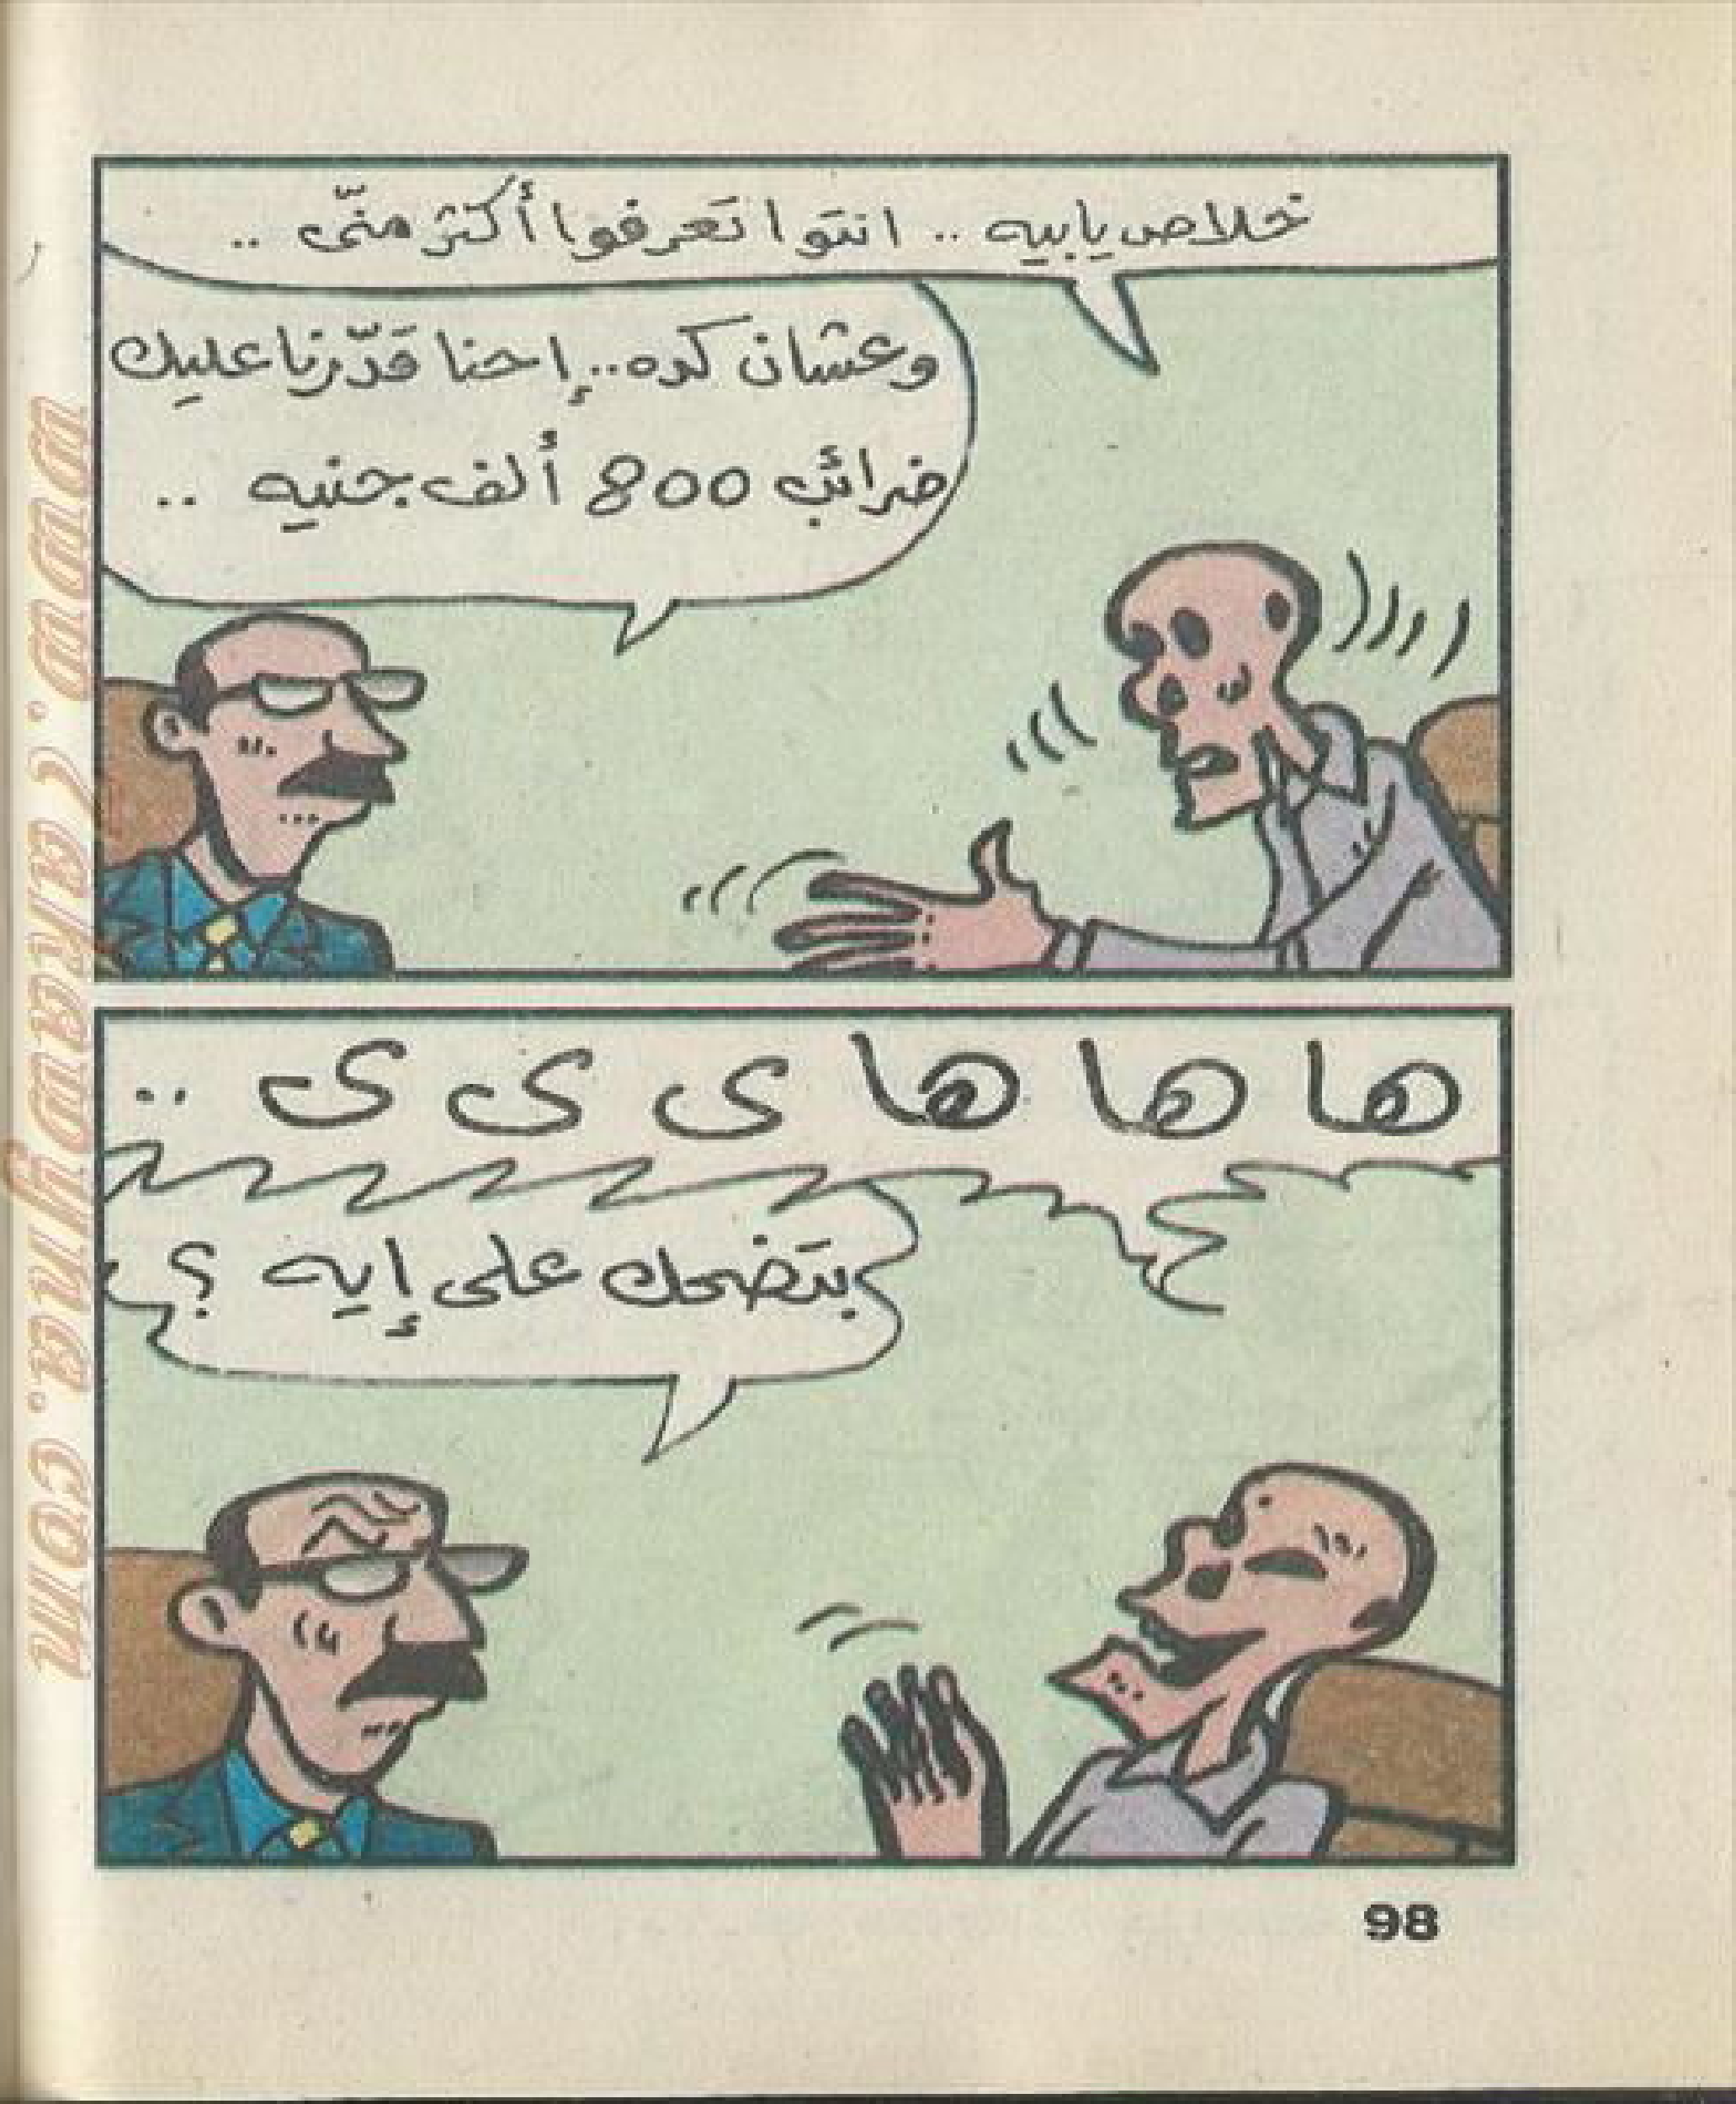 خلاص يابيه .. انتوا تَعرفوا أكتر منّى ..
وعشان كده.. إحنا قَدّرنا عليك
ضرائب 800 ألف جنيه ..
ها ها ها ى ى ى ..
بتَضحك على إيه ؟
98